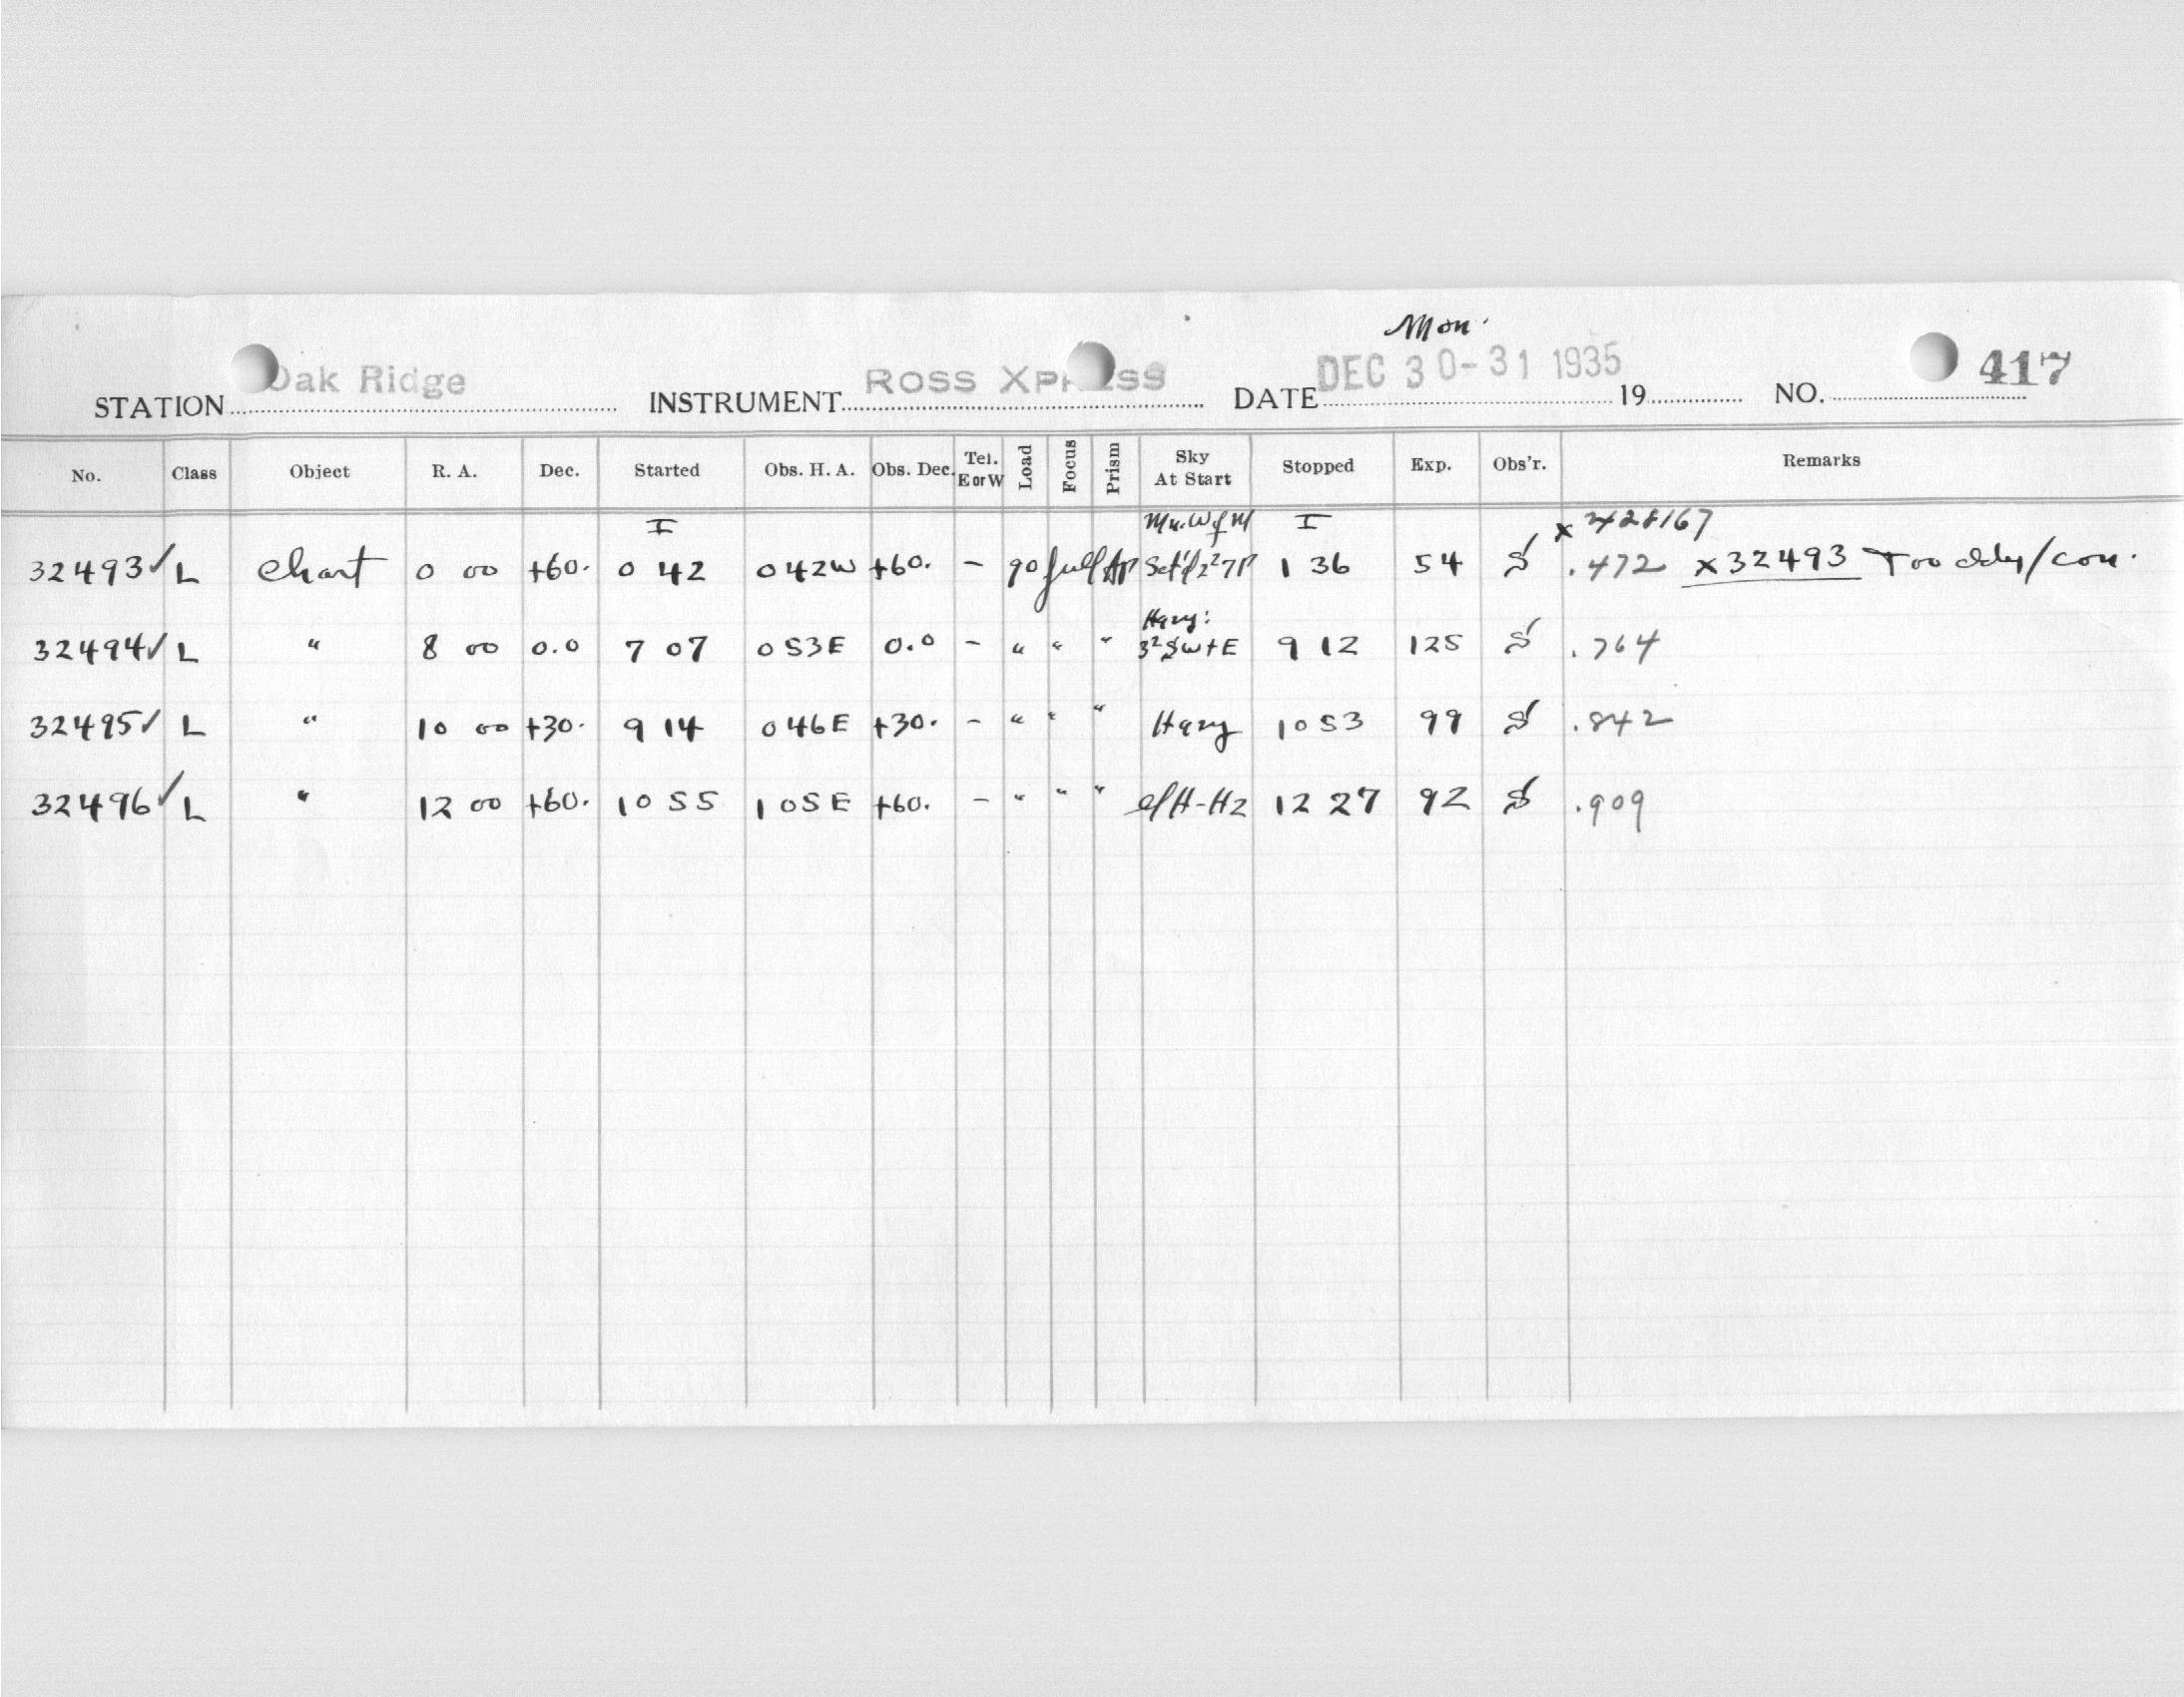 Mon.
STATION Oak Ridge INSTRUMENT ROSS XPRESS DATE DEC 30-31 1935 19 NO. 417
No. Class Object R. A. Dec. Started Obs. H. A. Obs. Dec. Tel. E or W Load Focus Prism Sky At Start Stopped Exp. Obs'r. Remarks
I I x 2428167
32493✓ L Chart 0 00 +60. 0 42 0 42W +60. – 90 full Ap 1 36 54 S .472 x32493 Too cldy/con.
Hazy:
32494✓ L " 8 00 0.0 7 07 0 53E 0.0 – " " " 3² SW+E 9 12 125 S .764
32495✓ L " 10 00 +30. 9 14 0 46E +30. – " " " Hazy 10 53 99 S .842
32496✓ L " 12 00 +60. 10 55 1 05E +60. – " " " H-Hz 12 27 92 S .909